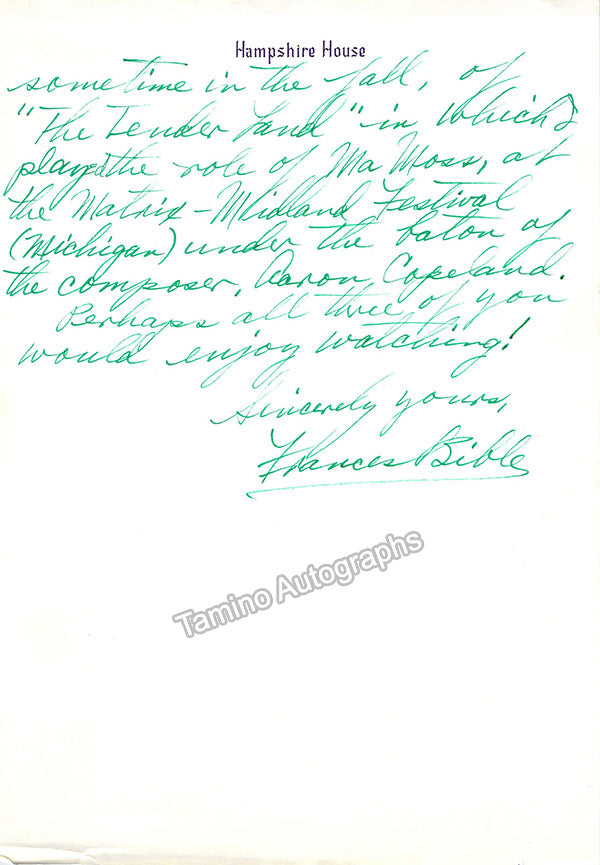 Hampshire House
sometime in the fall, of
"The Tender Land" in which I
played the role of Ma Moss, at
the Matrix-Midland Festival
(Michigan) under the baton of
the composer, Aaron Copeland.
Perhaps all three of you
would enjoy watching!
Sincerely yours,
Frances Bible
Tamino Autographs